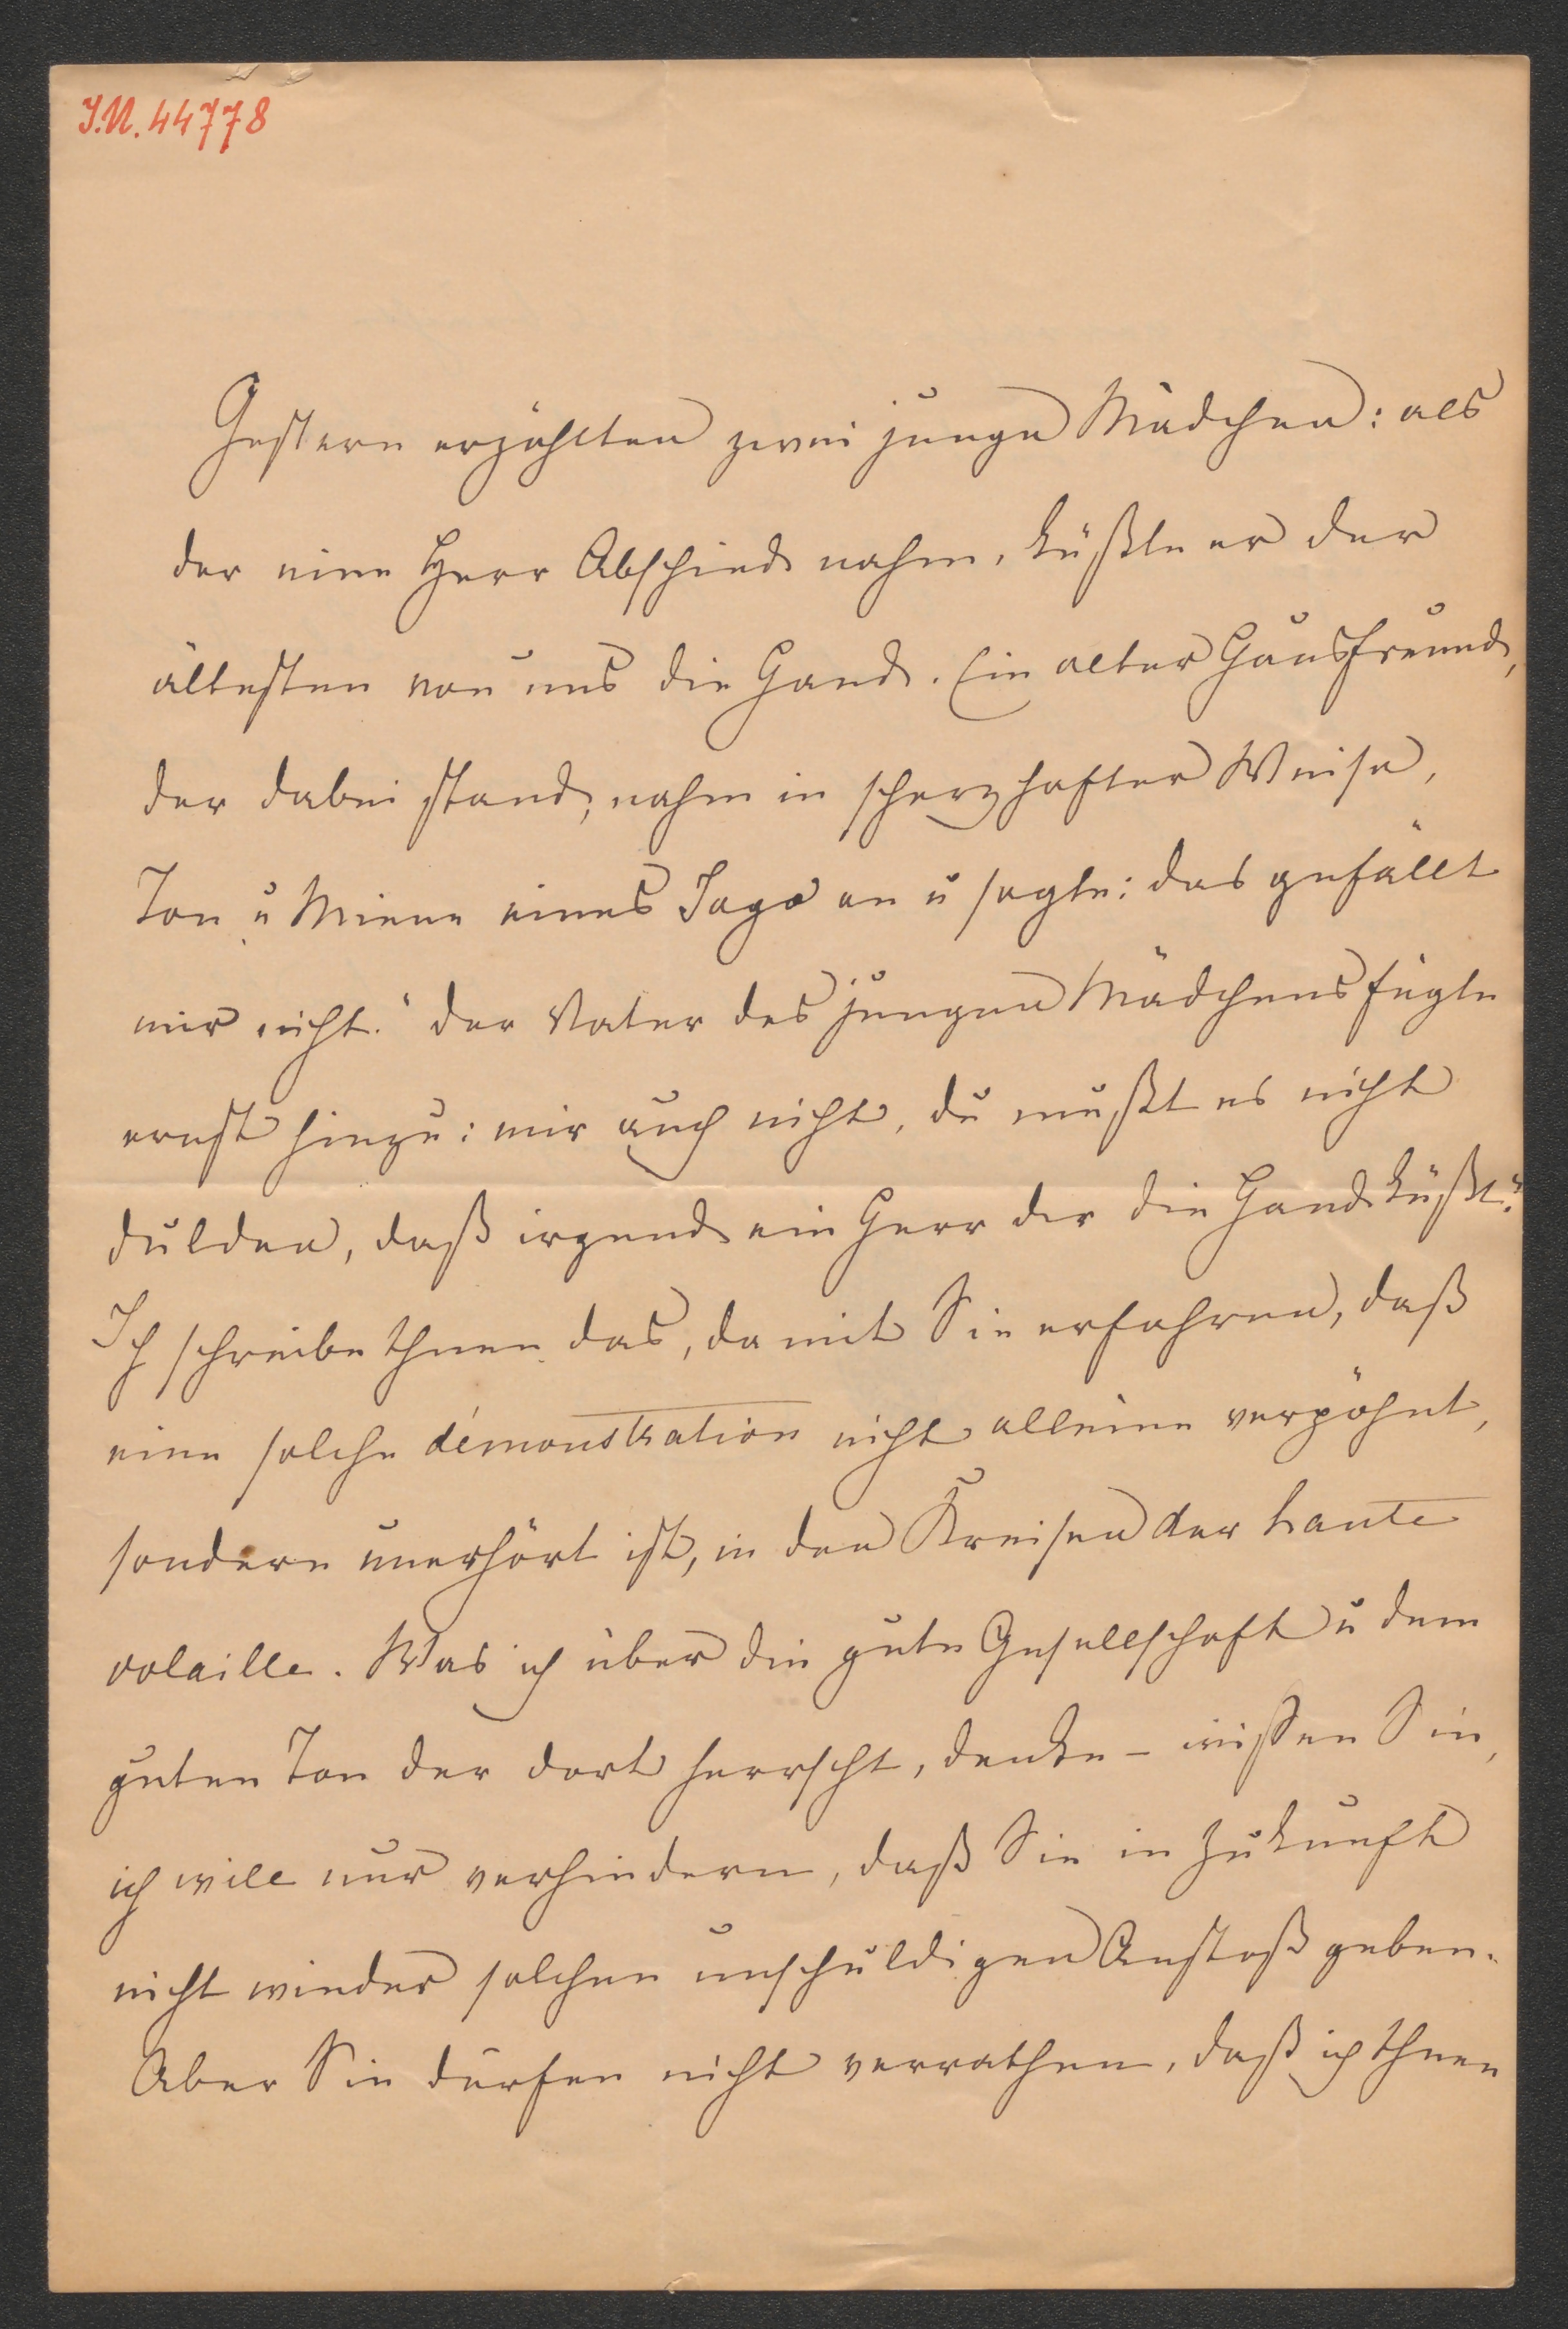 I.N. 44778
Gestern erzählten zwei junge Mädchen: als
der eine Herr Abschied nahm, küßte er der
ältesten von uns die Hand. Ein alter Hausfreund,
der dabei stand, nahm in scherzhafter Weise,
Ton u Miene eines Jago an u sagte: das gefällt
mir nicht." der Vater des jungen Mädchens fügte
ernst hinzu: mir auch nicht, du mußt es nicht
dulden, daß irgend ein Herr dir die Hand küßt."
Ich schreibe Ihnen das, damit Sie erfahren, daß
eine solche démonstration nicht alleine verpöhnt,
sondern unerhört ist, in den Kreisen der haute
volaille. Was ich über die gute Gesellschaft u dem
guten Ton der dort herrscht, denke – wißen Sie,
ich will nur verhindern, daß Sie in Zukunft
nicht wieder solchen unschuldigen Anstoß geben.
Aber Sie dürfen nicht verrathen, daß ich Ihnen